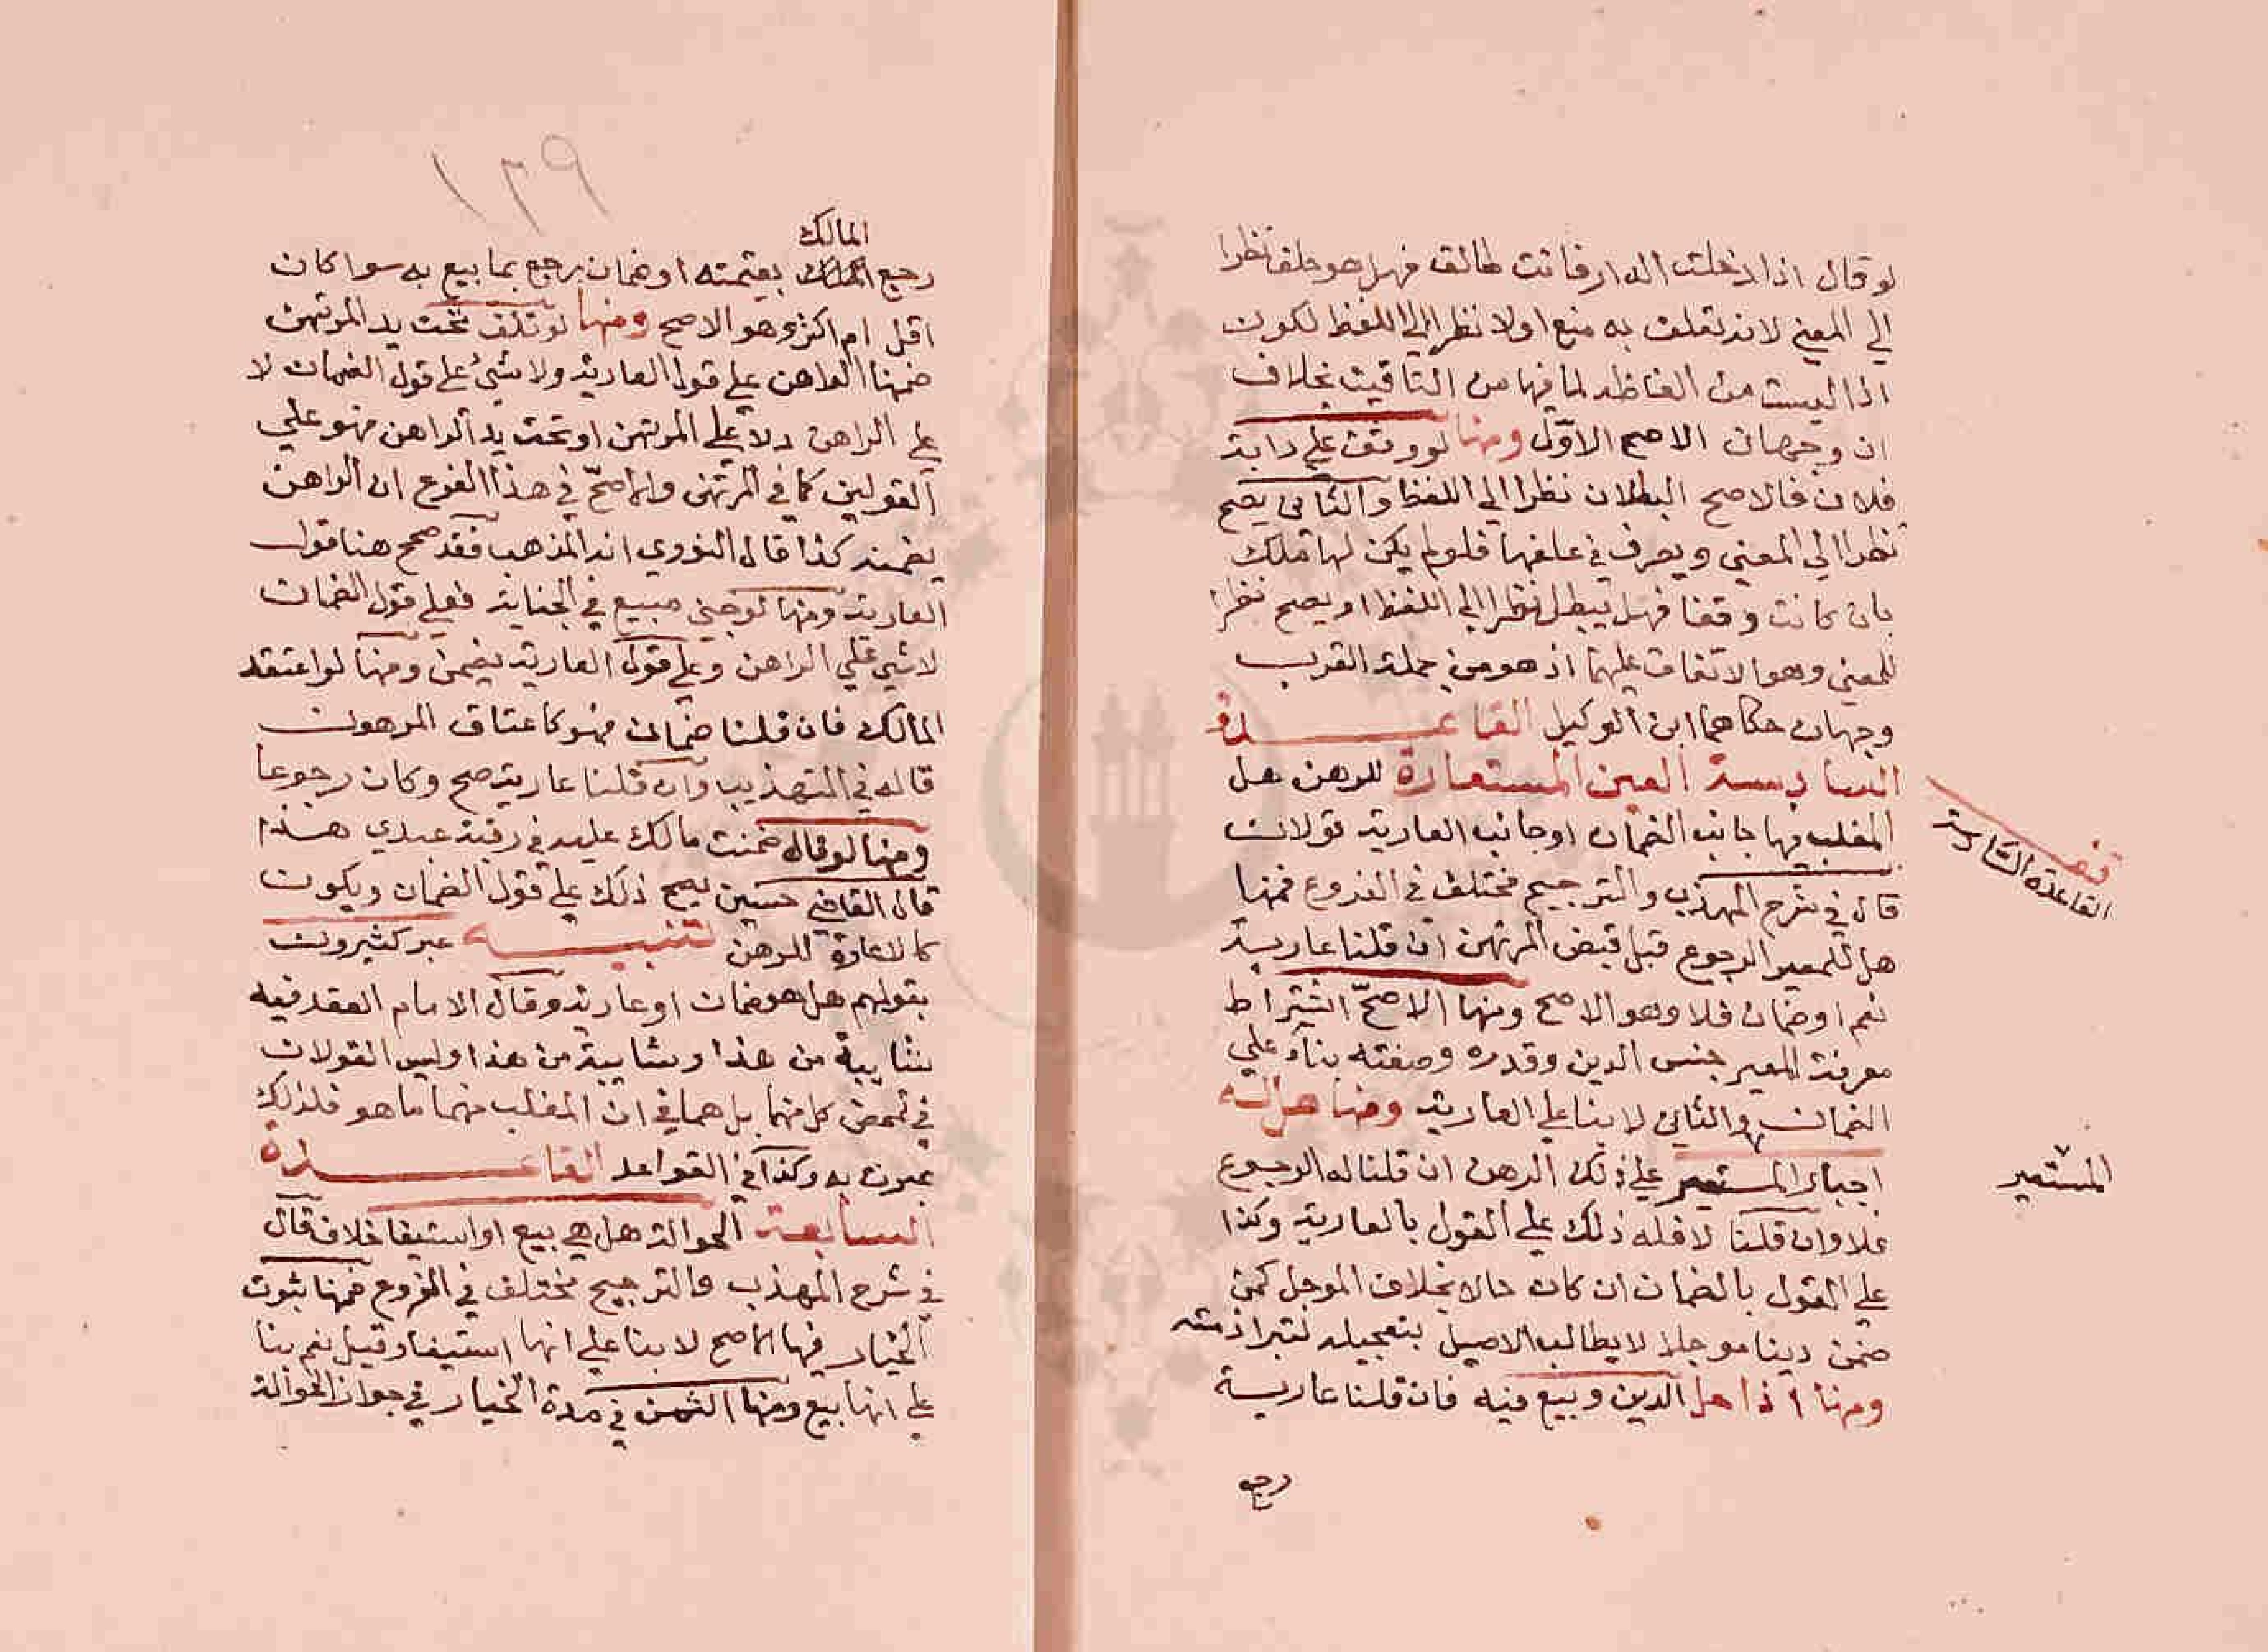 لو قال اذا دخلت الدار فانت طالق فهل هو حلف نظرا
الي المعني لانه تعلق به منع اولا نظرا الي اللفظ لكون
اذا ليست من الفاظه لما فيها من التاقيت بخلاف
ان وجهان الاصح الاوّل ومنها لو وقف علي دابة
فلان فالاصح البطلان نظرا الي اللفظ والثاني يصح
نظرا الي المعني ويصرف في علفها فلو لم يكن لها مالك
بان كانت وقفا فهل يبطل نظرا الي اللفظ او يصح نظرا
للمعني وهو الانفاق عليها اذ هو من جملة القرب
وجهان حكاهما ابن الوكيل القاعدة
السادسة العين المستعارة للرهن هل
المغلب فيها جانب الضمان او جانب العارية قولان
قال في شرح المهذب والترجيح مختلف في الفروع فمنها
هل للمعير الرجوع قبل قبض المرتهن ان قلنا عارية
نعم او ضمان فلا وهو الاصح ومنها الاصحّ اشتراط
معرفة المعير جنس الدين وقدره وصفته بناء علي
الضمان والثاني لا بنا علي العارية ومنها هل له
اجبار المستعير علي فك الرهن ان قلنا له الرجوع
فلا وان قلنا لا فله ذلك علي القول بالعارية وكذا
علي القول بالضمان ان كان حالا بخلاف الموجل كمن
ضمن دينا موجلا لا يطالب الاصيل بتعجيله لتبرا ذمته
ومنها اذا حل الدين وبيع فيه فان قلنا عارية
رجع
القاعدة السادسة
المستعير
١٣٩
المالك
رجع المالك بقيمته او ضمان رجع بما بيع به سوا كان
اقل ام اكثر وهو الاصح ومنها لو تلف تحت يد المرتهن
ضمنها الراهن علي قول العارية ولا شئ علي قول الضمان لا
علي الراهن ولا علي المرتهن او تحت يد الراهن فهو علي
القولين كما في المرتهن والاصحّ في هذا الفرع ان الراهن
يضمنه كذا قال النووي انه المذهب فقد صحح هنا قول
العارية ومنها لو جني فبيع في الجناية فعلي قول الضمان
لا شي علي الراهن وعلي قول العارية يضمن ومنها لو اعتقد
المالك فان قلنا ضمان فهو كاعتاق المرهون
قاله في التهذيب وان قلنا عارية صح وكان رجوعا
ومنها لو قال ضمنت مالك عليه في رقبة عبدي هذا
قال القاضي حسين يصح ذلك علي قول الضمان ويكون
كالاعارة للرهن تنبيه عبر كثيرون
بقولهم هل هو ضمان او عارية وقال الامام العقد فيه
شايبة من هذا وشايبة من هذا وليس القولان
في تمحض كل منهما بل هما في ان المغلب منهما ما هو فلذلك
عبرت به وكذا في القواعد القاعدة
السابعة الحوالة هل هي بيع او استيفا خلاف قال
في شرح المهذب والترجيح مختلف في الفروع فمنها ثبوت
الخيار فيها الاصح لا بنا علي انها استيفا وقيل نعم بنا
علي انها بيع ومنها الثمن في مدة الخيار في جواز الحوالة